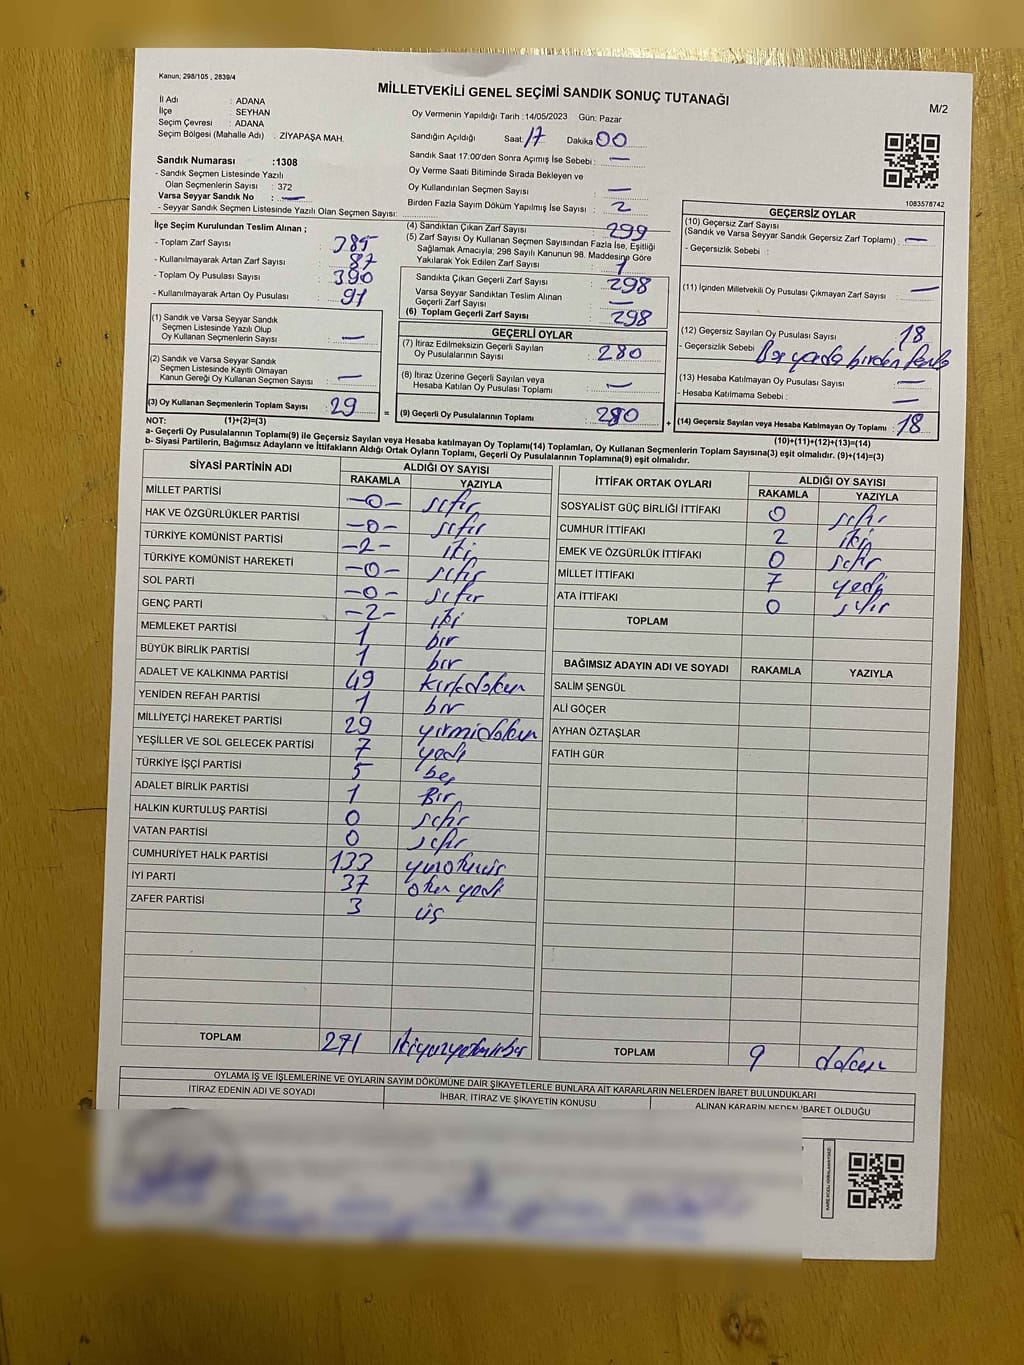 Kanun; 298/105 , 2839/4
MİLLETVEKİLİ GENEL SEÇİMİ SANDIK SONUÇ TUTANAĞI
M/2
İl Adı : ADANA
İlçe : SEYHAN
Seçim Çevresi : ADANA
Seçim Bölgesi (Mahalle Adı) : ZİYAPAŞA MAH.
Oy Vermenin Yapıldığı Tarih :14/05/2023 Gün: Pazar
Sandığın Açıldığı Saat: 17 Dakika 00
Sandık Saat 17:00'den Sonra Açımış İse Sebebi : —
Oy Verme Saati Bitiminde Sırada Bekleyen ve
Oy Kullandırılan Seçmen Sayısı : —
Birden Fazla Sayım Döküm Yapılmış İse Sayısı : 2
Sandık Numarası :1308
- Sandık Seçmen Listesinde Yazılı
Olan Seçmenlerin Sayısı : 372
Varsa Seyyar Sandık No : —
- Seyyar Sandık Seçmen Listesinde Yazılı Olan Seçmen Sayısı:
1083578742
İlçe Seçim Kurulundan Teslim Alınan ;
- Toplam Zarf Sayısı : 385
- Kullanılmayarak Artan Zarf Sayısı : 87
- Toplam Oy Pusulası Sayısı : 390
- Kullanılmayarak Artan Oy Pusulası : 91
(1) Sandık ve Varsa Seyyar Sandık
Seçmen Listesinde Yazılı Olup
Oy Kullanan Seçmenlerin Sayısı : —
(2) Sandık ve Varsa Seyyar Sandık
Seçmen Listesinde Kayıtlı Olmayan
Kanun Gereği Oy Kullanan Seçmen Sayısı : —
(3) Oy Kullanan Seçmenlerin Toplam Sayısı : 29 =
(4) Sandıktan Çıkan Zarf Sayısı : 299
(5) Zarf Sayısı Oy Kullanan Seçmen Sayısından Fazla İse, Eşitliği
Sağlamak Amacıyla; 298 Sayılı Kanunun 98. Maddesine Göre
Yakılarak Yok Edilen Zarf Sayısı : 1
Sandıkta Çıkan Geçerli Zarf Sayısı : 298
Varsa Seyyar Sandıktan Teslim Alınan
Geçerli Zarf Sayısı : —
(6) Toplam Geçerli Zarf Sayısı : 298
GEÇERLİ OYLAR
(7) İtiraz Edilmeksizin Geçerli Sayılan
Oy Pusulalarının Sayısı : 280
(8) İtiraz Üzerine Geçerli Sayılan veya
Hesaba Katılan Oy Pusulası Toplamı : —
(9) Geçerli Oy Pusulalarının Toplamı : 280 +
GEÇERSİZ OYLAR
(10) Geçersiz Zarf Sayısı
(Sandık ve Varsa Seyyar Sandık Geçersiz Zarf Toplamı) : —
- Geçersizlik Sebebi :
(11) İçinden Milletvekili Oy Pusulası Çıkmayan Zarf Sayısı : —
(12) Geçersiz Sayılan Oy Pusulası Sayısı : 18
- Geçersizlik Sebebi : Boş yada birden fazla
(13) Hesaba Katılmayan Oy Pusulası Sayısı : —
- Hesaba Katılmama Sebebi : —
(14) Geçersiz Sayılan veya Hesaba Katılmayan Oy Toplamı : 18
NOT: (1)+(2)=(3)
(10)+(11)+(12)+(13)=(14)
a- Geçerli Oy Pusulalarının Toplamı(9) ile Geçersiz Sayılan veya Hesaba katılmayan Oy Toplamı(14) Toplamları, Oy Kullanan Seçmenlerin Toplam Sayısına(3) eşit olmalıdır. (9)+(14)=(3)
b- Siyasi Partilerin, Bağımsız Adayların ve İttifakların Aldığı Ortak Oyların Toplamı, Geçerli Oy Pusulalarının Toplamına(9) eşit olmalıdır.
SİYASİ PARTİNİN ADI ALDIĞI OY SAYISI
RAKAMLA YAZIYLA
MİLLET PARTİSİ -0- sıfır
HAK VE ÖZGÜRLÜKLER PARTİSİ -0- sıfır
TÜRKİYE KOMÜNİST PARTİSİ -2- iki
TÜRKİYE KOMÜNİST HAREKETİ -0- sıfır
SOL PARTİ -0- sıfır
GENÇ PARTİ -2- iki
MEMLEKET PARTİSİ 1 bir
BÜYÜK BİRLİK PARTİSİ 1 bir
ADALET VE KALKINMA PARTİSİ 49 kırkdokuz
YENİDEN REFAH PARTİSİ 1 bir
MİLLİYETÇİ HAREKET PARTİSİ 29 yirmidokuz
YEŞİLLER VE SOL GELECEK PARTİSİ 7 yedi
TÜRKİYE İŞÇİ PARTİSİ 5 beş
ADALET BİRLİK PARTİSİ 1 Bir
HALKIN KURTULUŞ PARTİSİ 0 sıfır
VATAN PARTİSİ 0 sıfır
CUMHURİYET HALK PARTİSİ 133 yüzotuzüç
İYİ PARTİ 37 otuz yedi
ZAFER PARTİSİ 3 üç
TOPLAM 271 ikiyüzyetmişbir
İTTİFAK ORTAK OYLARI ALDIĞI OY SAYISI
RAKAMLA YAZIYLA
SOSYALİST GÜÇ BİRLİĞİ İTTİFAKI 0 sıfır
CUMHUR İTTİFAKI 2 iki
EMEK VE ÖZGÜRLÜK İTTİFAKI 0 sıfır
MİLLET İTTİFAKI 7 yedi
ATA İTTİFAKI 0 sıfır
TOPLAM
BAĞIMSIZ ADAYIN ADI VE SOYADI RAKAMLA YAZIYLA
SALİM ŞENGÜL
ALİ GÖÇER
AYHAN ÖZTAŞLAR
FATİH GÜR
TOPLAM 9 dokuz
OYLAMA İŞ VE İŞLEMLERİNE VE OYLARIN SAYIM DÖKÜMÜNE DAİR ŞİKAYETLERLE BUNLARA AİT KARARLARIN NELERDEN İBARET BULUNDUKLARI
İTİRAZ EDENİN ADI VE SOYADI İHBAR, İTİRAZ VE ŞİKAYETİN KONUSU ALINAN KARARIN NEDEN İBARET OLDUĞU